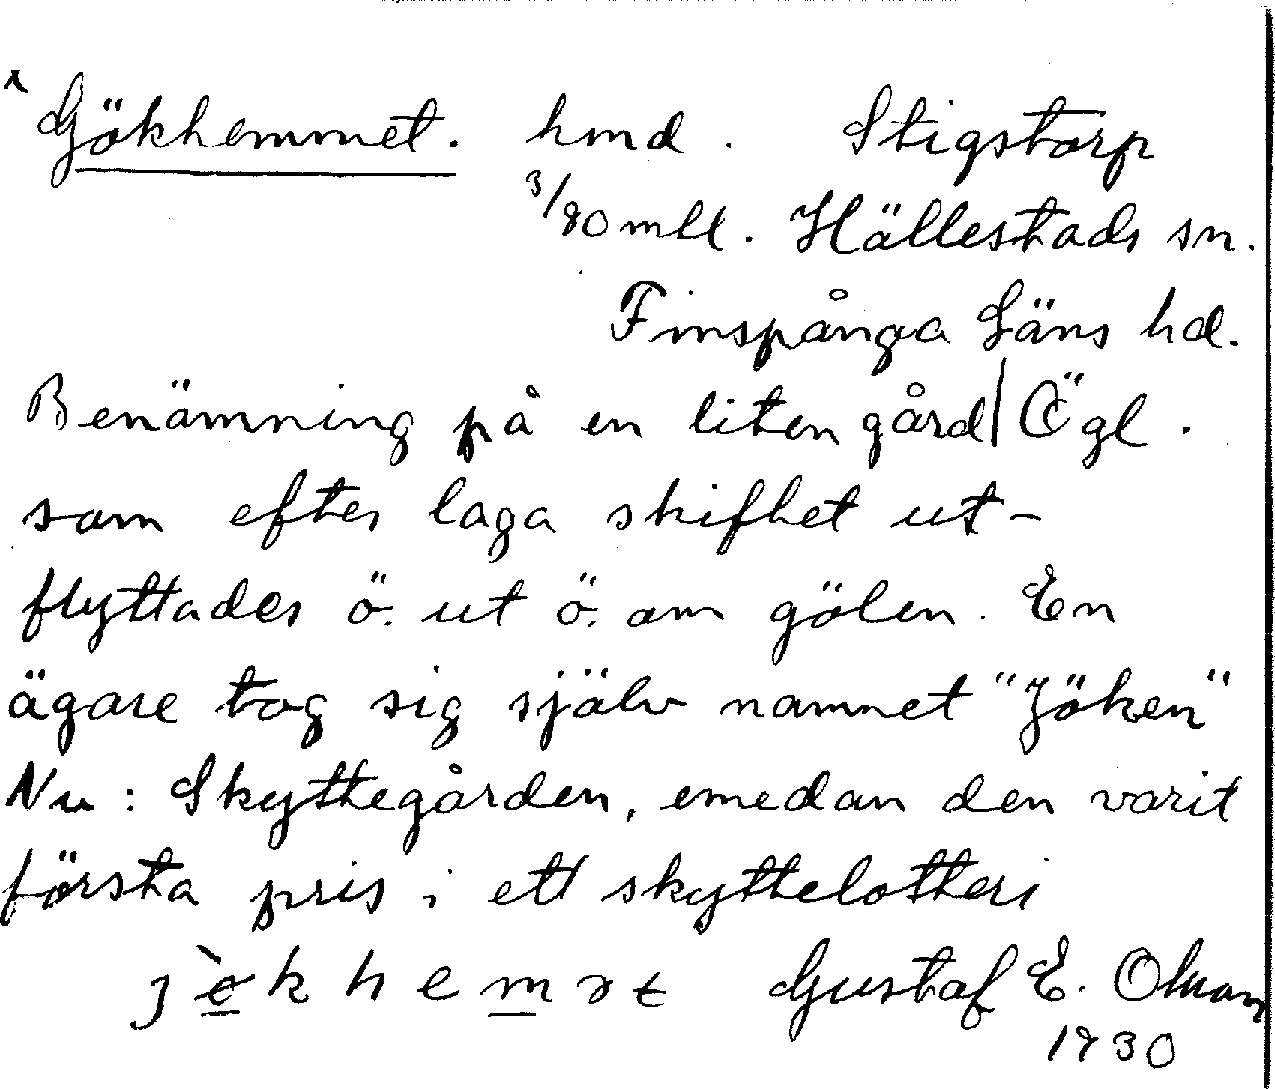 Gökhemmet. hmd. Stigstorp
3/80 mtl. Hällestads sn.
Finspånga Läns hd.
Benämning på en liten gård | Ögl.
som efter laga skiftet ut-
flyttades ö. ut ö. om gölen. En
ägare tog sig själv namnet "Jöken"
Nu: Skyttegården, emedan den varit
första pris i ett skyttelotteri
jø̀khemət Gustaf E. Olsson
1930